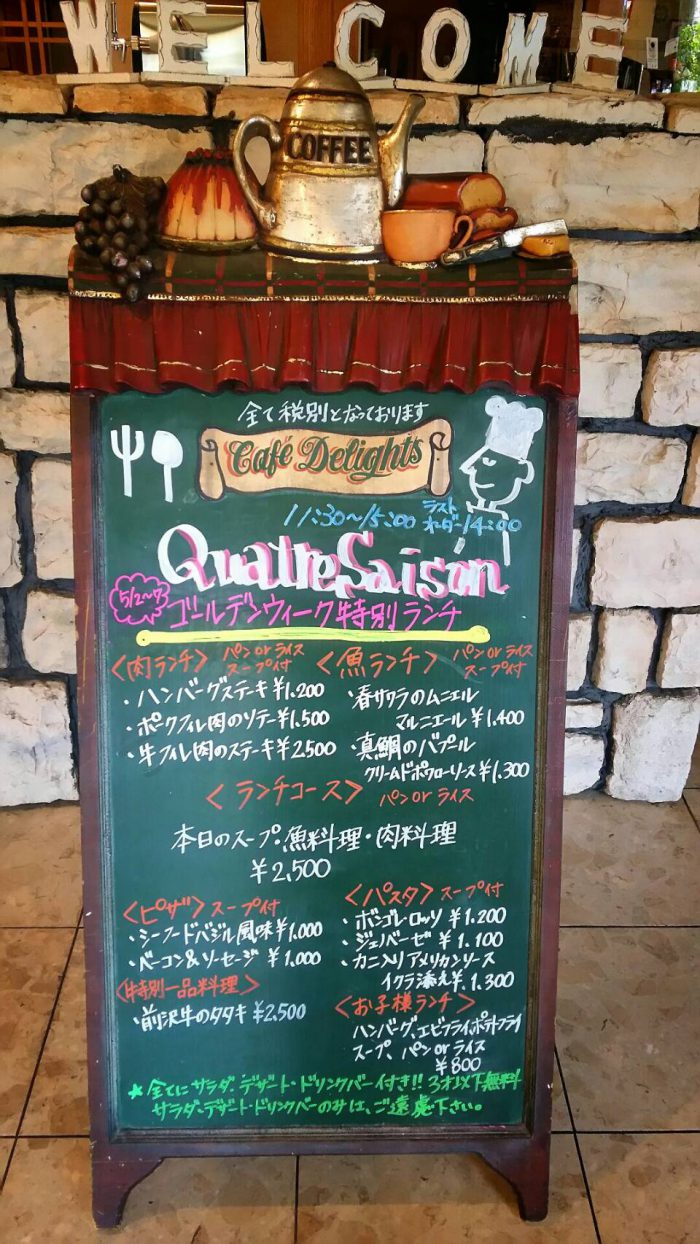 WELCOME
COFFEE
全て税別となっております
Café Delights
11:30～15:00 ラストオーダー14:00
Quatre Saison
5/2～7
ゴールデンウィーク特別ランチ
〈肉ランチ〉 パン or ライス スープ付
・ハンバーグステーキ ¥1.200
・ポークフィレ肉のソテー ¥1.500
・牛フィレ肉のステーキ ¥2.500
〈魚ランチ〉 パン or ライス スープ付
・春サワラのムニエル
マルニエール ¥1.400
・真鯛のバプール
クリームドポワローソース ¥1.300
〈ランチコース〉 パン or ライス
本日のスープ、魚料理・肉料理
¥2,500
〈ピザ〉 スープ付
・シーフードバジル風味 ¥1.000
・ベーコン&ソーセージ ¥1.000
〈特別一品料理〉
・前沢牛のタタキ ¥2,500
〈パスタ〉 スープ付
・ボンゴレ・ロッソ ¥1.200
・ジェノバーゼ ¥1.100
・カニ入りアメリカンソース
イクラ添え ¥1.300
〈お子様ランチ〉
ハンバーグ、エビフライ、ポテトフライ
スープ、パン or ライス
¥800
★全てにサラダ、デザート・ドリンクバー付き!! 3才以下無料
サラダ・デザート・ドリンクバーのみは、ご遠慮下さい。